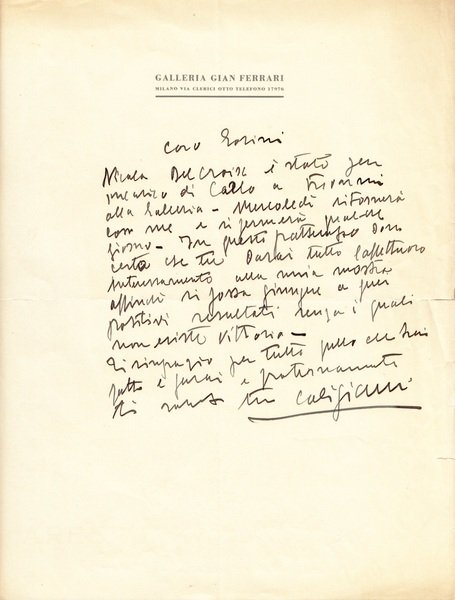 GALLERIA GIAN FERRARI
MILANO VIA CLERICI OTTO TELEFONO 17976
caro
Nicola Delcroix è stato per
incarico di Carlo a
alla Galleria - Mercoledì ritornerà
con me e si fermerà qualche
giorno - In questo frattempo sono
certo che tu Darai tutto l'affettuoso
interessamento alla mia mostra
affinché si possa giungere a quei
positivi resultati senza i quali
non esiste vittoria -
Ti ringrazio per tutto quello che hai
fatto e farai e fraternamente
ti tuo